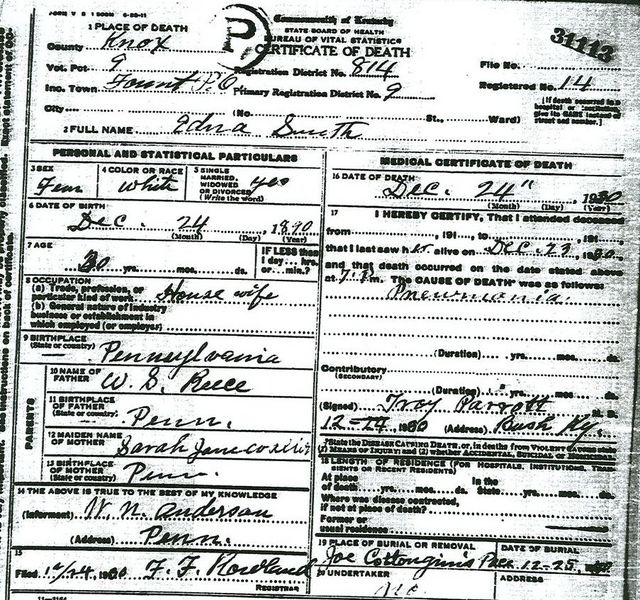 FORM V S 1
Commonwealth of Kentucky
STATE BOARD OF HEALTH
BUREAU OF VITAL STATISTICS
CERTIFICATE OF DEATH
31113
1 PLACE OF DEATH
County Knox
Vot. Pct. 9
Registration District No. 814
File No.
Inc. Town Fount P.O
Primary Registration District No. 9
Registered No. 14
City (No. St., Ward)
[If death occurred in a hospital or institution give its NAME instead of street and number.]
2 FULL NAME Edna Smith
PERSONAL AND STATISTICAL PARTICULARS
3 SEX Fem
4 COLOR OR RACE White
5 SINGLE MARRIED, WIDOWED OR DIVORCED (Write the word) yes
6 DATE OF BIRTH
Dec. 24, 1890
(Month) (Day) (Year)
7 AGE
30 yrs. mos. ds.
IF LESS than 1 day... hrs. or... min.?
8 OCCUPATION
(a) Trade, profession, or particular kind of work House wife
(b) General nature of industry business or establishment in which employed (or employer)
9 BIRTHPLACE
(State or country) Pennsylvania
PARENTS
10 NAME OF FATHER W. S. Reece
11 BIRTHPLACE OF FATHER (State or country) Penn.
12 MAIDEN NAME OF MOTHER Sarah Jane
13 BIRTHPLACE OF MOTHER (State or country) Penn
14 THE ABOVE IS TRUE TO THE BEST OF MY KNOWLEDGE
(Informant) W. N. Anderson
(Address) Penn.
15
Filed 12/24, 1920 F. F. Rowland
REGISTRAR
MEDICAL CERTIFICATE OF DEATH
16 DATE OF DEATH
Dec. 24", 1920
(Month) (Day) (Year)
17 I HEREBY CERTIFY, That I attended deceased
from , 191 , to , 191
that I last saw her alive on Dec. 23, 1920,
and that death occurred on the date stated above
at 7. P. m. The CAUSE OF DEATH* was as follows:
Pneumonia.
(Duration) yrs. mos. ds.
Contributory
(SECONDARY)
(Duration) yrs. mos. ds.
(Signed) Troy Parrott M. D.
12-24, 1920 (Address) Bush Ky.
*State the DISEASE CAUSING DEATH, or, in deaths from VIOLENT CAUSES state (1) MEANS OF INJURY; and (2) whether ACCIDENTAL, SUICIDAL or HOMICIDAL
18 LENGTH OF RESIDENCE (FOR HOSPITALS, INSTITUTIONS, TRANSIENTS OR RECENT RESIDENTS)
At place of death yrs. mos. ds. In the State yrs. mos. ds.
Where was disease contracted, if not at place of death?
Former or usual residence
19 PLACE OF BURIAL OR REMOVAL
Joe Cottongim's Place
DATE OF BURIAL
12-25, 1920
20 UNDERTAKER
No
ADDRESS